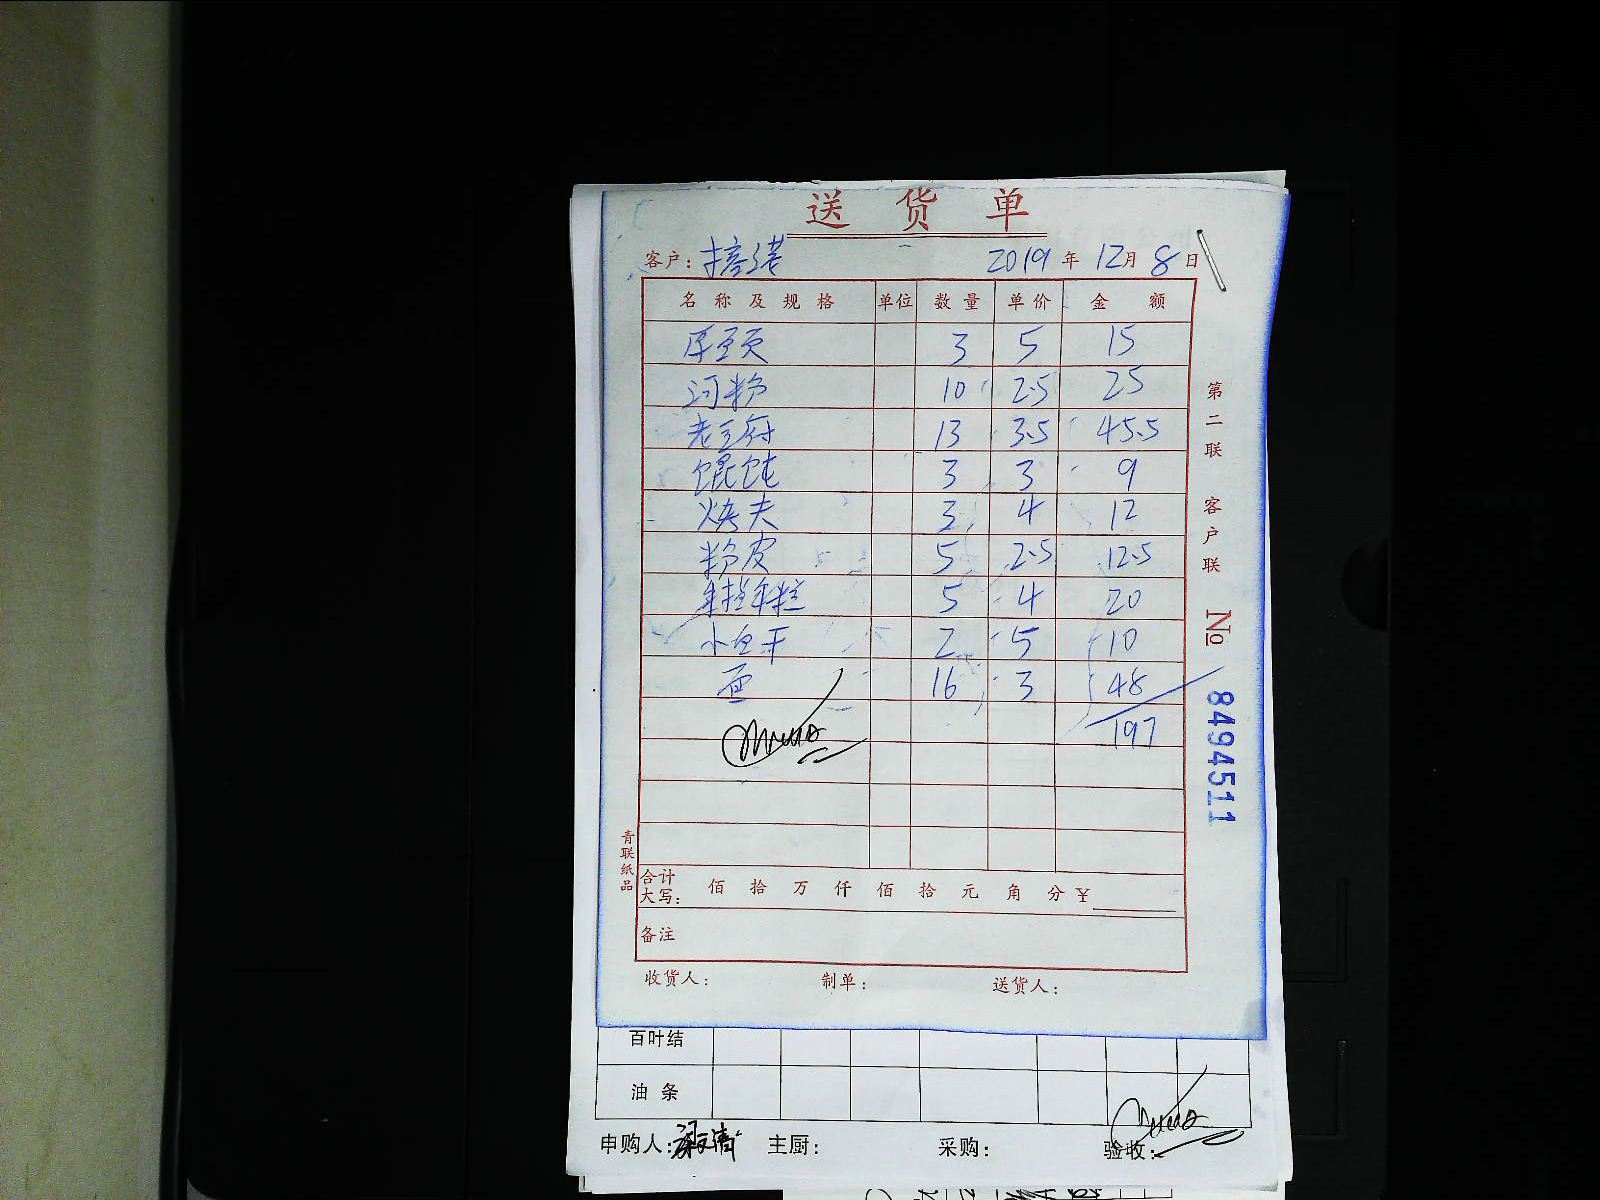 送 货 单
客户: 2019 年 12 月 8 日
名 称 及 规 格 单位 数 量 单 价 金 额
厚豆页 3 5 15
河粉 10 2.5 25
老豆府 13 3.5 45.5
馄饨 3 3 9
烤夫 3 4 12
粉皮 5 2.5 12.5
5 4 20
小豆干 2 5 10
面 16 3 48
197
合计
大写: 佰 拾 万 仟 佰 拾 元 角 分 ¥
备注
收货人: 制单: 送货人:
青联纸品
第二联 客户联 No 8494511
百叶结
油 条
申购人: 主厨: 采购: 验收: